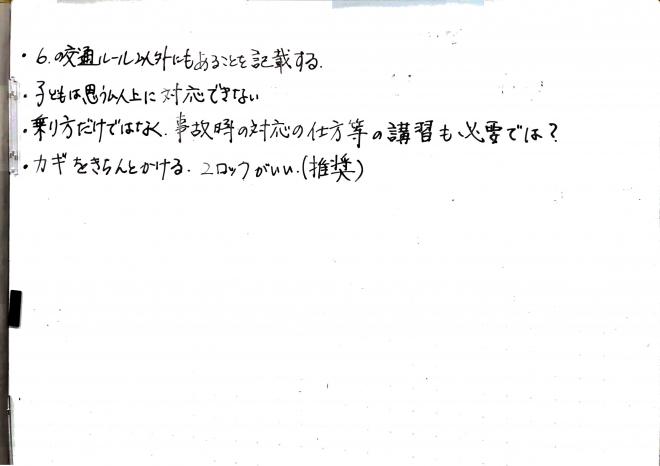 ・6.の交通ルール以外にもあることを記載する.
・子どもは思う以上に対応できない
・乗り方だけではなく.事故時の対応の仕方等の講習も必要では?
・カギをきちんとかける. 2ロックがいい.(推奨)